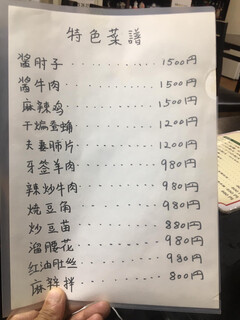 特色菜譜
酱肘子 ········ 1500円
酱牛肉 ········ 1500円
麻辣鸡 ········ 1500円
干煸蚕蛹 ········ 1200円
夫妻肺片 ········ 1200円
牙签羊肉 ········ 980円
辣炒牛肉 ········ 980円
烧豆角 ········ 980円
炒豆苗 ········ 880円
溜腰花 ········ 980円
红油肚丝 ········ 980円
麻辣拌 ········ 800円